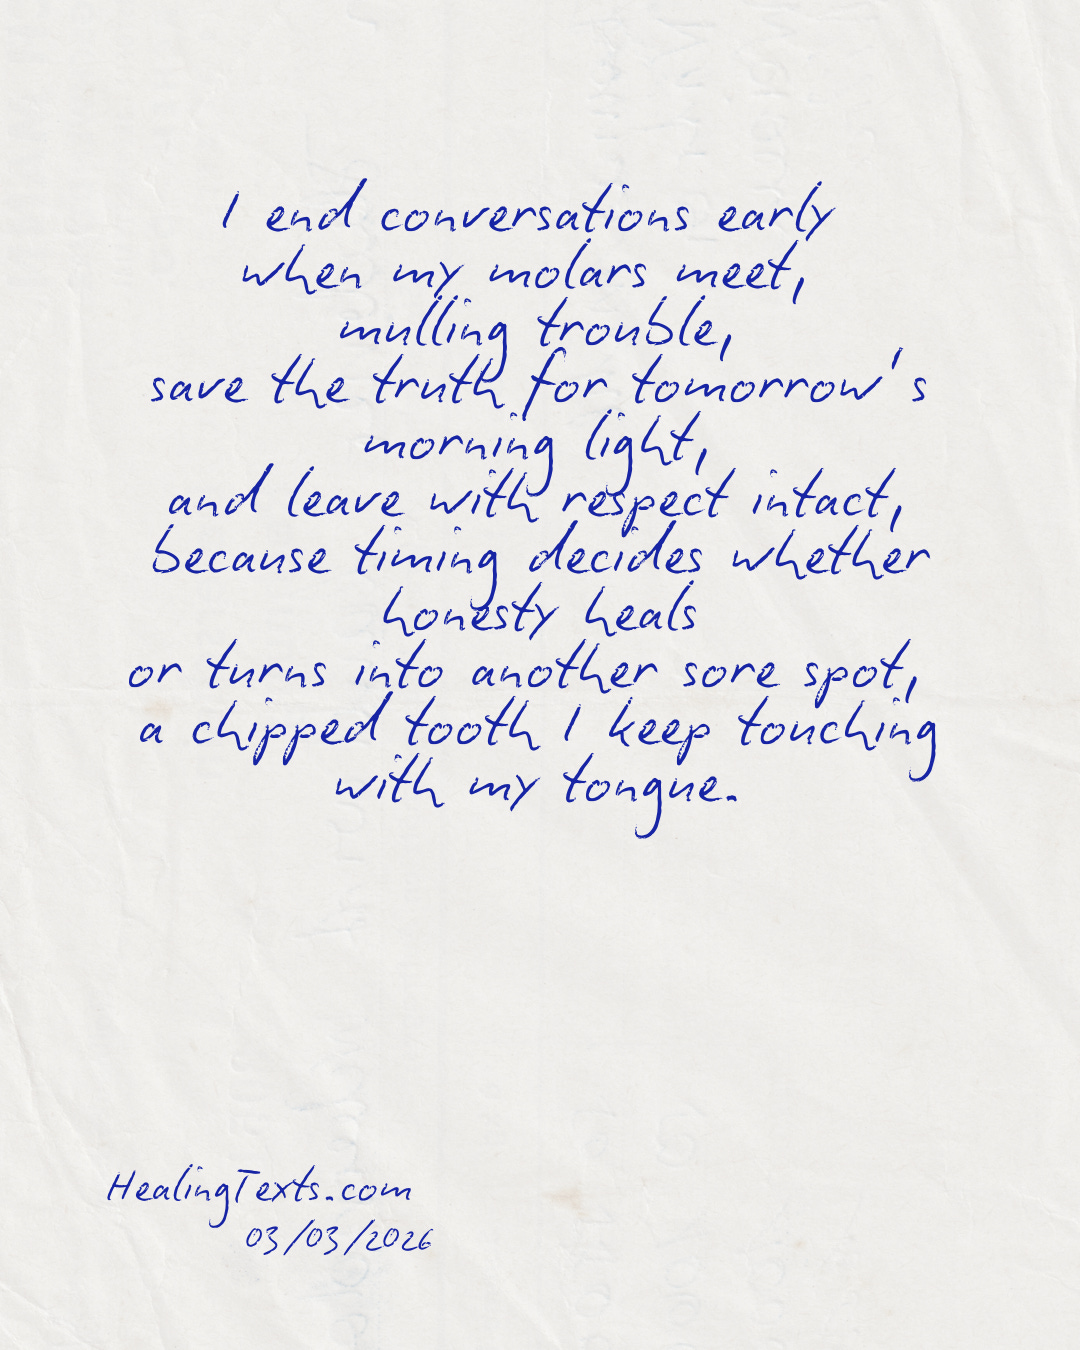 I end conversations early
when my molars meet,
mulling trouble,
save the truth for tomorrow's
morning light,
and leave with respect intact,
because timing decides whether
honesty heals
or turns into another sore spot,
a chipped tooth I keep touching
with my tongue.
HealingTexts.com
03/03/2026